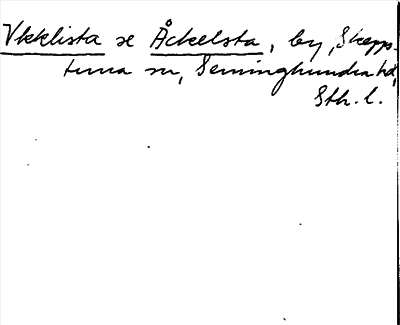 Vkklista se Åckelsta, by, Skepp-
tuna sn, Seminghundra hd,
Sth. l.